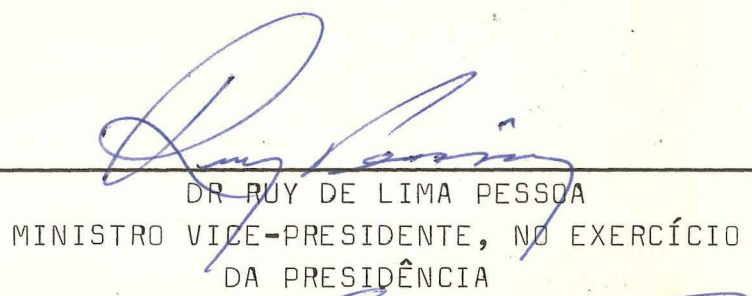 Ruy Pessôa
DR RUY DE LIMA PESSOA
MINISTRO VICE-PRESIDENTE, NO EXERCÍCIO
DA PRESIDÊNCIA